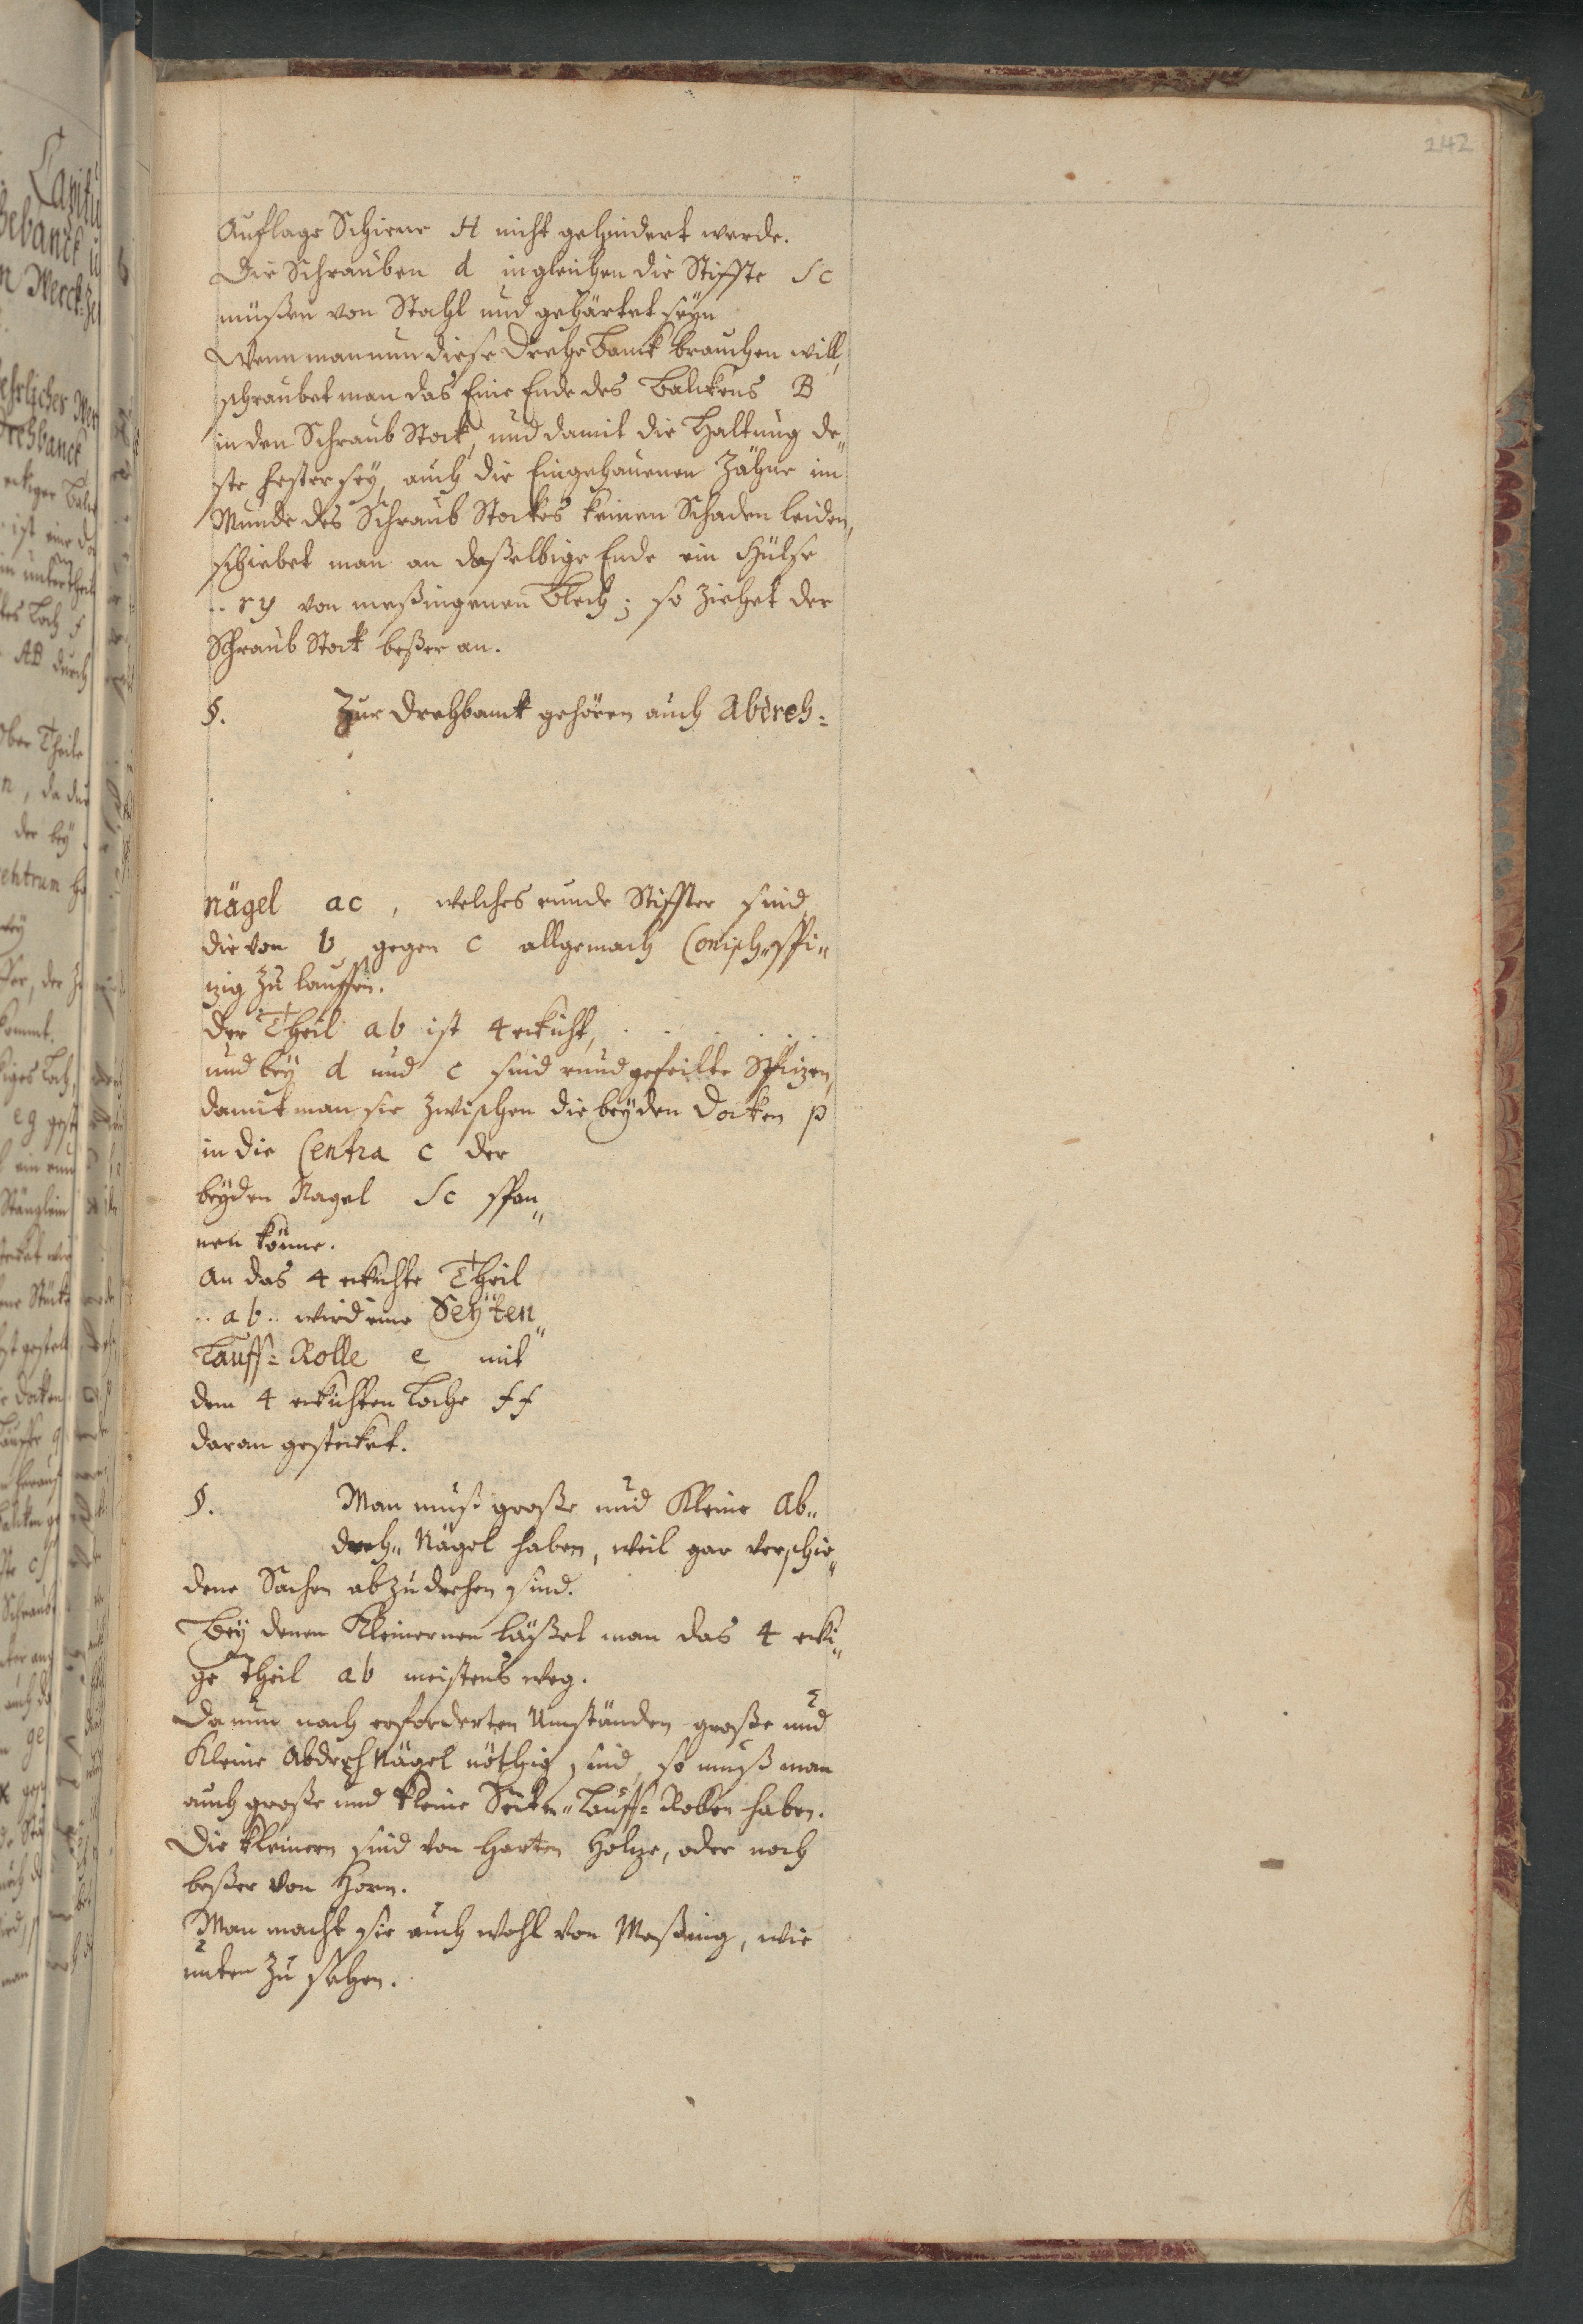 242
Auflage Schiene H nicht gehindert werde.
Die Schrauben d ingleichen die Stiffte Sc
müßen von Stahl und gehärtet seÿn
Wenn man nun diese Drehe Banck brauchen will,
schraubet man das Eine Ende des Balckens B
in den Schraub Stock, und damit die Haltung de„
ste fester seÿ, auch die Eingehauenen Zähne im
Munde des Schraub Stockes keinen Schaden leiden,
schiebet man an daßelbige Ende ein Hülse
.. ry von meßingenen Blech; so ziehet der
Schraub Stock beßer an.
§. Zur Drehbanck gehören auch Abdreh=
nägel ac, welches runde Stiffter sind,
die von b gegen c allgemach Conisch„spi„
zig zu lauffen.
Der Theil ab ist 4 eckicht,
und beÿ d und c sind rund gefeilte Spizen,
damit man sie zwischen die beÿden Docken p
in die Centra c der
beÿden Nagel Sc span„
nen könne.
An das 4 eckichte Theil
.. ab .. wird eine Seÿten„
Lauff= Rolle e mit
dem 4 eckichten Loche ff
daran gestecket.
§. Man muß große und Kleine Ab„
dreh„ Nägel haben, weil gar verschie„
dene Sachen abzudrehen sind.
Beÿ denen Kleinernen läßet man das 4 ecki„
ge Theil ab meistens weg.
Da nun nach erforderten Umständen große und
Kleine Abdreh Nägel nöthig sind, so muß man
auch große und kleine Seiten„ Lauff= Rollen haben.
Die kleinern sind von harten Holze, oder noch
beßer von Horn.
Man macht sie auch wohl von Meßing, wie
unten zu sehen.